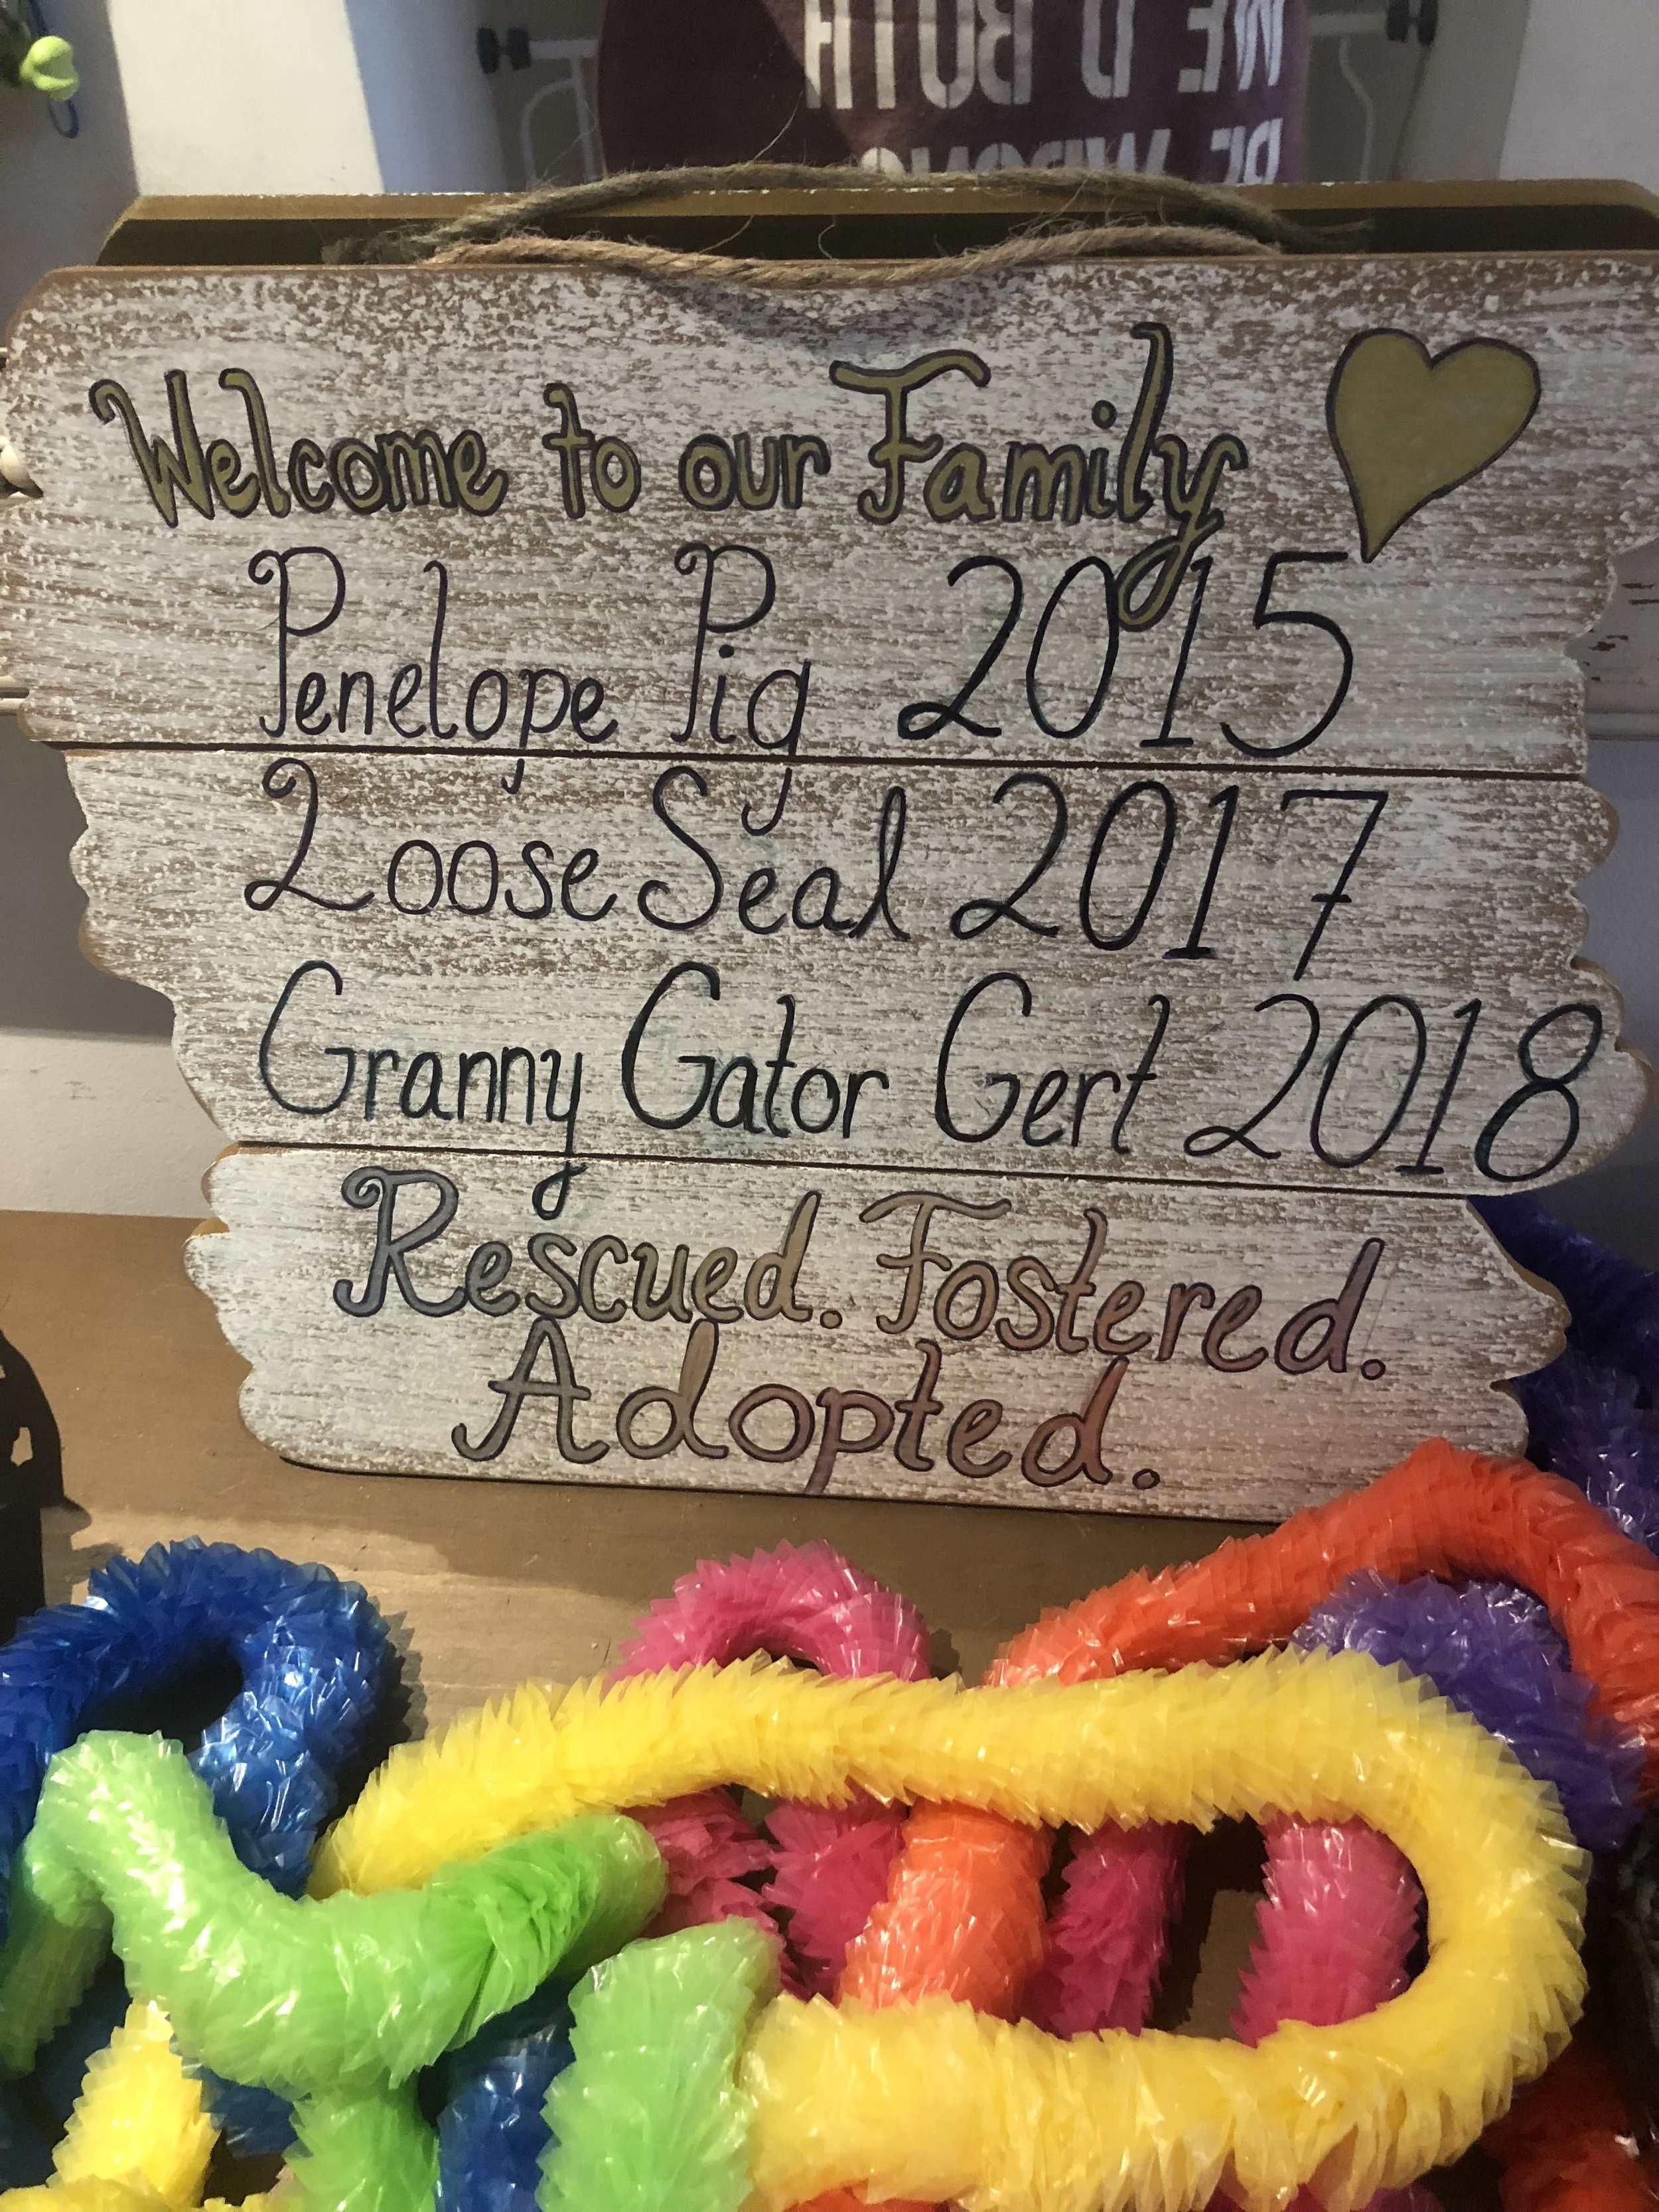 WE'D BOTH
BE WRONG
Welcome to our Family
Penelope Pig 2015
Loose Seal 2017
Granny Gator Gert 2018
Rescued. Fostered.
Adopted.